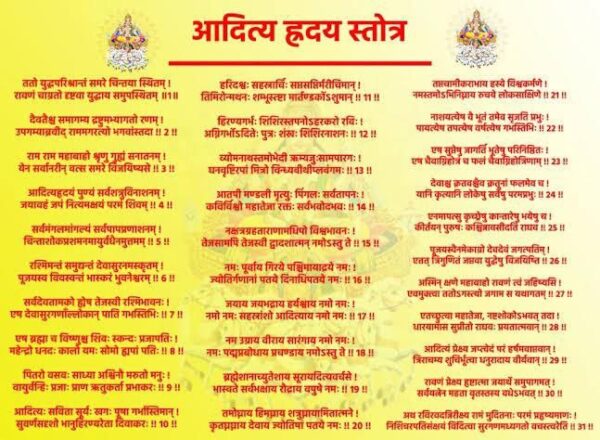 आदित्य ह्रदय स्तोत्र
ततो युद्धपरिश्रान्तं समरे चिन्तया स्थितम् !
रावणं चाग्रतो दृष्टवा युद्धाय समुपस्थितम् ॥1॥
दैवतैश्च समागम्य द्रष्टुमभ्यागतो रणम् !
उपगम्याब्रवीद् राममगरत्यो भगवांस्तदा !! 2 !!
राम राम महाबाहो श्रृणु गुह्यं सनातनम् !
येन सर्वानरीन् वत्स समरे विजयिष्यसे !! 3 !!
आदित्यहृदयं पुण्यं सर्वशत्रुविनाशनम् !
जयावहं जपं नित्यमक्षयं परमं शिवम् !! 4 !!
सर्वमंगलमांगल्यं सर्वपापप्रणाशनम् !
चिन्ताशोकप्रशमनमायुर्वर्धैनमुत्तमम् !! 5 !!
रश्मिमन्तं समुद्यन्तं देवासुरनमस्कृतम् !
पूजयस्व विवस्वन्तं भास्करं भुवनेश्वरम् !! 6 !!
सर्वदेवतामको ह्येष तेजस्वी रश्मिभावनः !
एष देवासुरगणाँल्लोकान् पाति गभस्तिभिः !! 7 !!
एष ब्रह्मा च विष्णुश्च शिवः स्कन्दः प्रजापतिः !
महेन्द्रो धनदः कालो यमः सोमो ह्यपां पतिः !! 8 !!
पितरो वसवः साध्या अश्विनौ मरुतो मनुः !
वायुर्वन्हिः प्रजाः प्राण ऋतुकर्ता प्रभाकरः !! 9 !!
आदित्यः सविता सूर्यः खगः पूषा गर्भास्तिमान् !
सुवर्णसदृशो भानुहिरण्यरेता दिवाकरः !! 10 !!
हरिदश्वः सहस्रार्चिः सप्तसप्तिर्मरीचिमान् !
तिमिरोन्मथनः शम्भूस्त्ष्टा मार्तण्डकोंऽशुमान् !! 11 !!
हिरण्यगर्भः शिशिरस्तपनोऽहरकरो रविः !
अग्निगर्भोऽदितेः पुत्रः शंखः शिशिरनाशनः !! 12 !!
व्योमनाथस्तमोभेदी ऋम्यजुःसामपारगः !
घनवृष्टिरपां मित्रो विन्ध्यवीथीप्लवंगमः !! 13 !!
आतपी मण्डली मृत्युः पिंगलः सर्वतापनः !
कविर्विश्वो महातेजा रक्तः सर्वभवोदभवः !! 14 !!
नक्षत्रग्रहताराणामधिपो विश्वभावनः !
तेजसामपि तेजस्वी द्वादशात्मन् नमोऽस्तु ते !! 15 !!
नमः पूर्वाय गिरये पश्चिमायाद्रये नमः !
ज्योतिर्गणानां पतये दिनाधिपतये नमः !! 16 !!
जयाय जयभद्राय हर्यश्वाय नमो नमः !
नमो नमः सहस्रांशो आदित्याय नमो नमः !! 17 !!
नम उग्राय वीराय सारंगाय नमो नमः !
नमः पद्मप्रबोधाय प्रचण्डाय नमोऽस्तु ते !! 18 !!
ब्रह्मेशानाच्युतेशाय सुरायादित्यवर्चसे !
भास्वते सर्वभक्षाय रौद्राय वपुषे नमः !! 19 !!
तमोघ्नाय हिमघ्नाय शत्रुघ्नायामितात्मने !
कृतघ्नघ्नाय देवाय ज्योतिषां पतये नमः !! 20 !!
तप्तचामीकराभाय हस्ये विश्वकर्मणे !
नमस्तमोऽभिनिघ्नाय रुचये लोकसाक्षिणे !! 21 !!
नाशयत्येष वै भूतं तमेव सृजति प्रभुः !
पायत्येष तपत्येष वर्षत्येष गभस्तिभिः !! 22 !!
एष सुप्तेषु जागर्ति भूतेषु परिनिष्ठितः !
एष चैवाग्निहोत्रं च फलं चैवाग्निहोत्रिणाम् !! 23 !!
देवाश्च क्रतवश्चैव क्रतुनां फलमेव च !
यानि कृत्यानि लोकेषु सर्वेषु परमप्रभुः !! 24 !!
एनमापत्सु कृच्छ्रेषु कान्तारेषु भयेषु च !
कीर्तयन् पुरुषः कश्चिन्नावसीदति राघव !! 25 !!
पूजयस्वैनमेकाग्रो देवदेवं जगत्पतिम् !
एतत् त्रिगुणितं जप्तवा युद्धेषु विजयिष्ति !! 26 !!
अस्मिन् क्षणे महाबाहो रावणं त्वं जहिष्यसि !
एवमुक्त्वा ततोऽगस्त्यो जगाम स यथागतम् !! 27 !!
एतच्छ्रुत्वा महातेजा, नष्टशोकोऽभवत् तदा !
धारयामास सुप्रीतो राघवः प्रयतात्मवान् !! 28 !!
आदित्यं प्रेक्ष्य जप्त्वेदं परं हर्षमवाप्तवान् !
त्रिराचम्य शुचिर्भूत्वा धनुरादाय वीर्यवान् !! 29 !!
रावणं प्रेक्ष्य हृष्टात्मा जयार्थे समुपागमत् !
सर्वयत्नेन महता वृतस्तस्य वधेऽभवत् !! 30 !!
अथ रविरवदन्निरीक्ष्य रामं मुदितनाः परमं प्रहृष्यमाणः !
निशिचरपतिसंक्षयं विदित्वा सुरगणमध्यगतो वचस्त्वरेति !! 31 !!